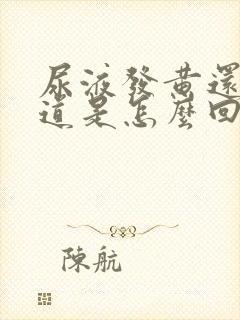 尿液發黄還
道是怎麼回
陳航